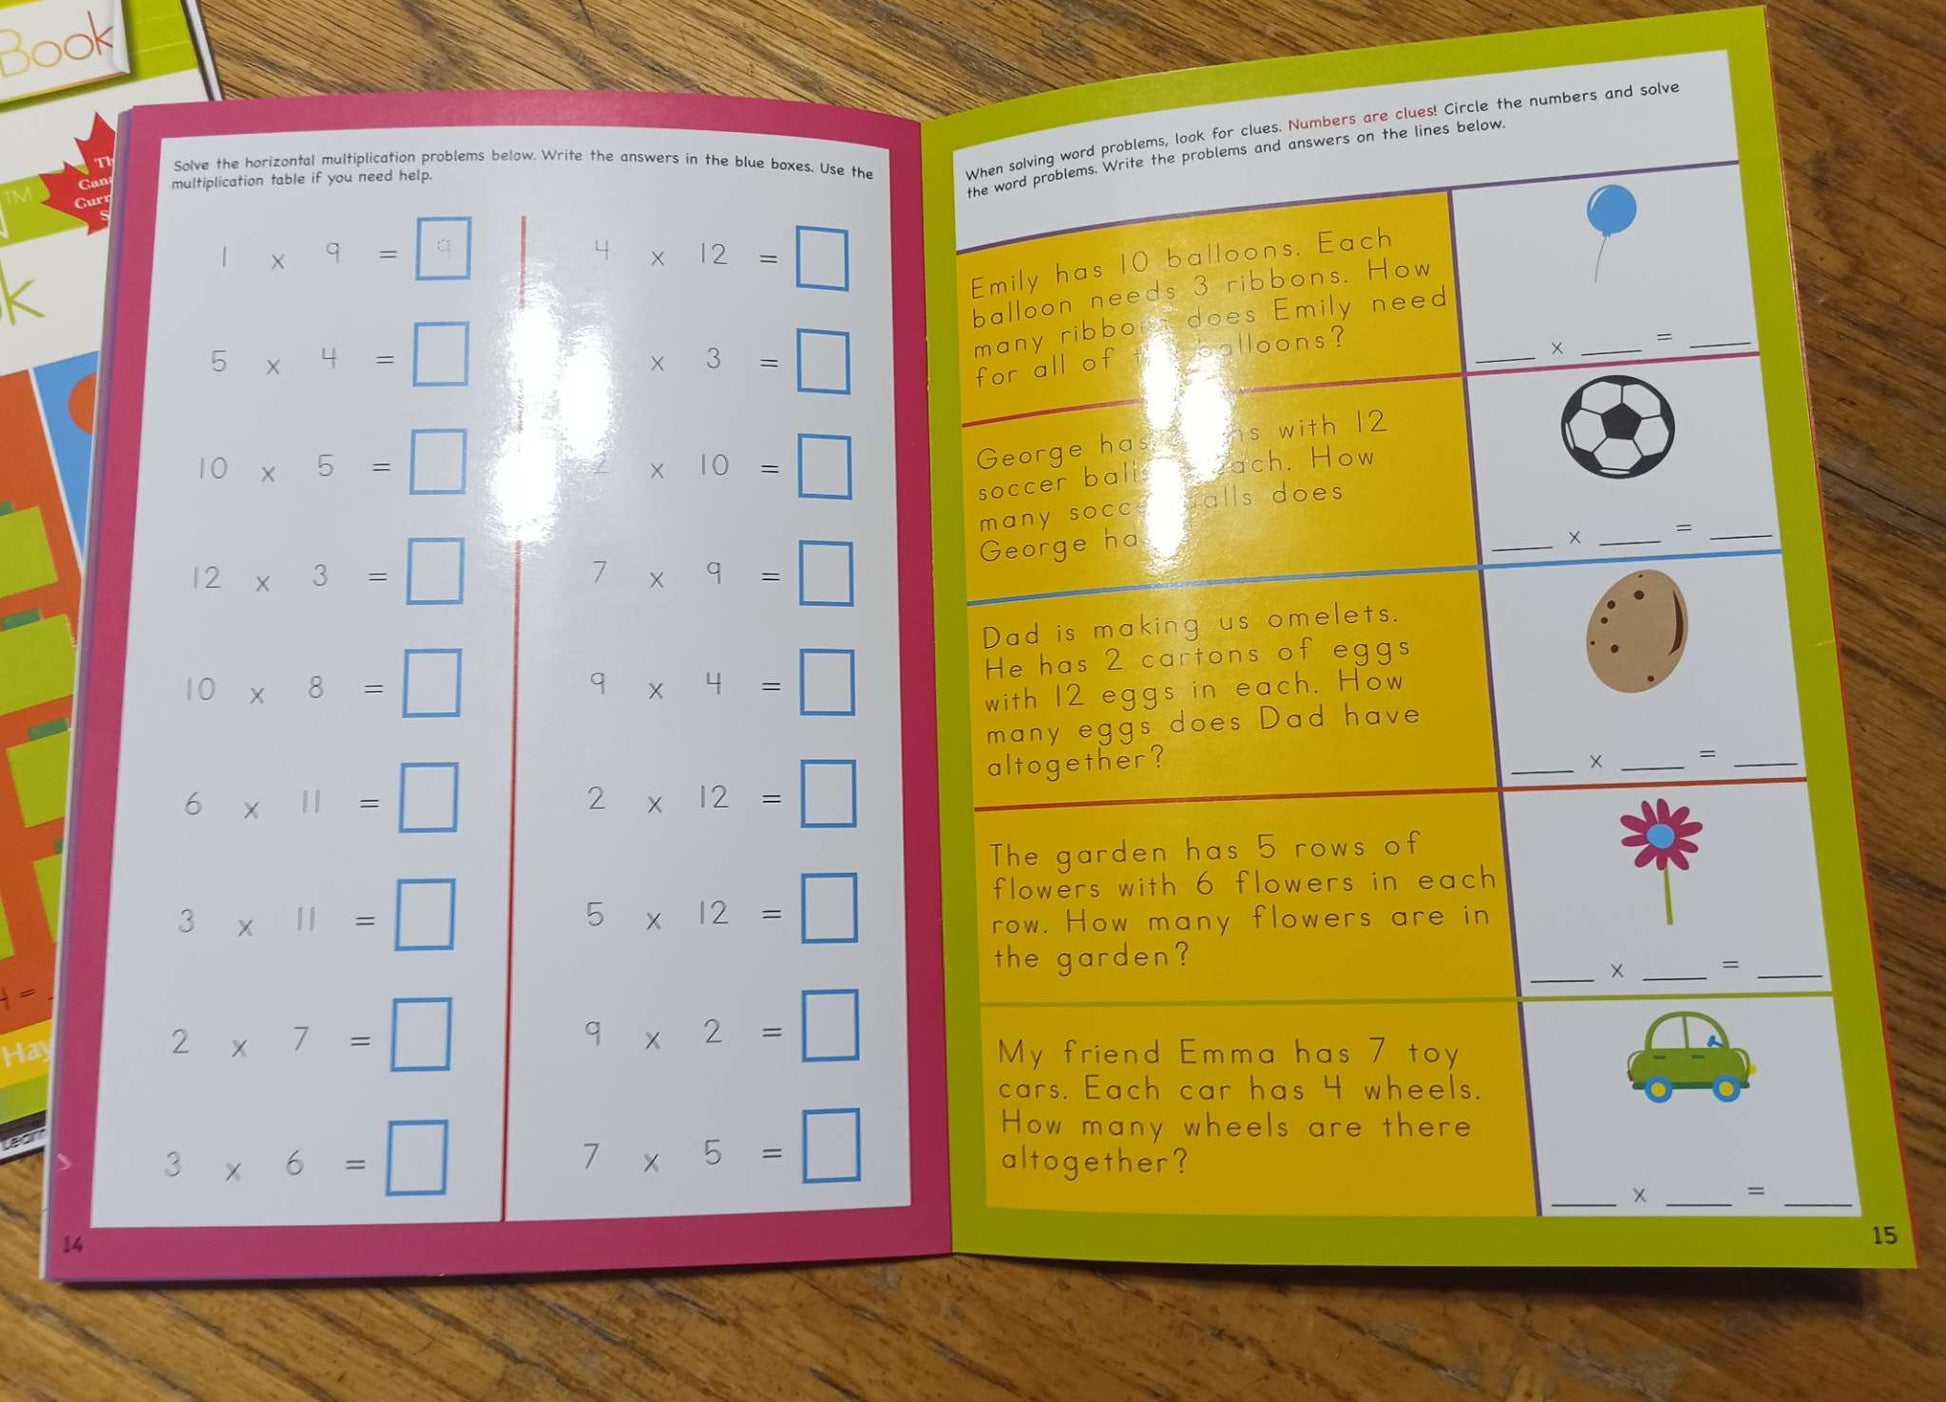 Book
TM
k
4 =
Hay
Learn
Solve the horizontal multiplication problems below. Write the answers in the blue boxes. Use the
multiplication table if you need help.
1 x 9 = 9
5 x 4 =
10 x 5 =
12 x 3 =
10 x 8 =
6 x 11 =
3 x 11 =
2 x 7 =
3 x 6 =
4 x 12 =
x 3 =
x 10 =
7 x 9 =
9 x 4 =
2 x 12 =
5 x 12 =
9 x 2 =
7 x 5 =
14
When solving word problems, look for clues. Numbers are clues! Circle the numbers and solve
the word problems. Write the problems and answers on the lines below.
Emily has 10 balloons. Each
balloon needs 3 ribbons. How
many ribbons does Emily need
for all of balloons?
___ x ___ = ___
George has with 12
soccer each. How
many soccer balls does
George
___ x ___ = ___
Dad is making us omelets.
He has 2 cartons of eggs
with 12 eggs in each. How
many eggs does Dad have
altogether?
___ x ___ = ___
The garden has 5 rows of
flowers with 6 flowers in each
row. How many flowers are in
the garden?
___ x ___ = ___
My friend Emma has 7 toy
cars. Each car has 4 wheels.
How many wheels are there
altogether?
___ x ___ = ___
15